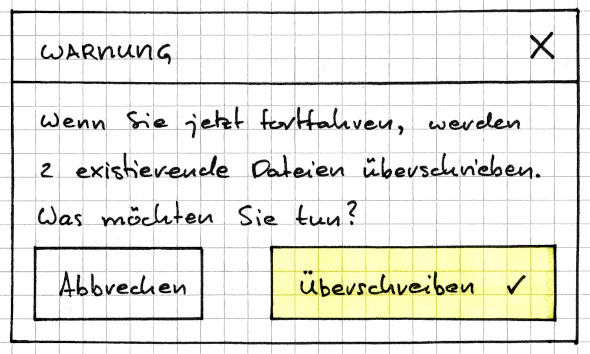 WARNUNG X
Wenn Sie jetzt fortfahren, werden
2 existierende Dateien überschrieben.
Was möchten Sie tun?
Abbrechen Überschreiben ✓